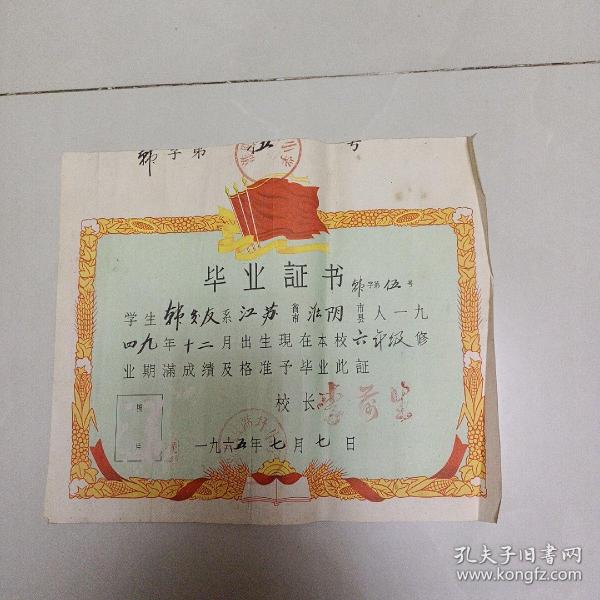 字第 伍 号
毕业証书
字第 伍 号
学生 韩 友 系 江苏 省市 淮阴 市县 人一九
四九年十二月出生現在本校六年级修
业期滿成绩及格准予毕业此証
校长 李
一九六五年七月七日
孔夫子旧书网
www.kongfz.com